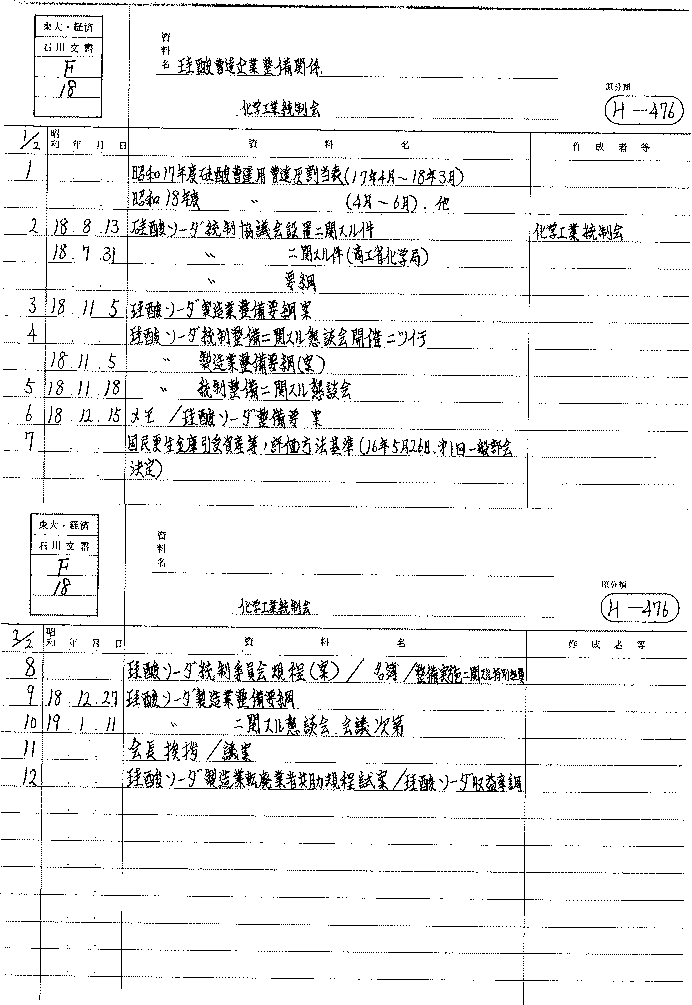 東大・経済
石川文書
F
18
資料名 珪酸曹達企業整備関係
化学工業統制会
原分類
H-476
1/2 昭和 年 月 日 資料名 作成者等
1 昭和17年度珪酸曹達用曹達灰割当表(17年4月～18年3月)
昭和18年度 〃 (4月～6月).他
2 18.8.13 硅酸ソーダ統制協議会設置ニ関スル件 化学工業統制会
18.7.31 〃 ニ関スル件(商工省化学局)
〃 要綱
3 18.11.5 珪酸ソーダ製造業整備要綱案
4 珪酸ソーダ統制整備ニ関スル懇談会開催ニツイテ
18.11.5 〃 製造業整備要綱(案)
5 18.11.18 〃 統制整備ニ関スル懇談会
6 18.12.15 メモ/珪酸ソーダ整備要 案
7 国民更生金庫引受資産等ノ評価方法基準(16年5月26日.才1回一般部会
決定)
東大・経済
石川文書
F
18
資料名
化学工業統制会
原分類
H-476
2/2 昭和 年 月 日 資料名 作成者等
8 珪酸ソーダ統制委員会規程(案)/名簿/整備実施ニ関スル特別措置
9 18.12.27 珪酸ソーダ製造業整備要綱
10 19.1.11 〃 ニ関スル懇談会会議次第
11 会長挨拶/議案
12 珪酸ソーダ製造業転廃業者共助規程試案/珪酸ソーダ収益率調